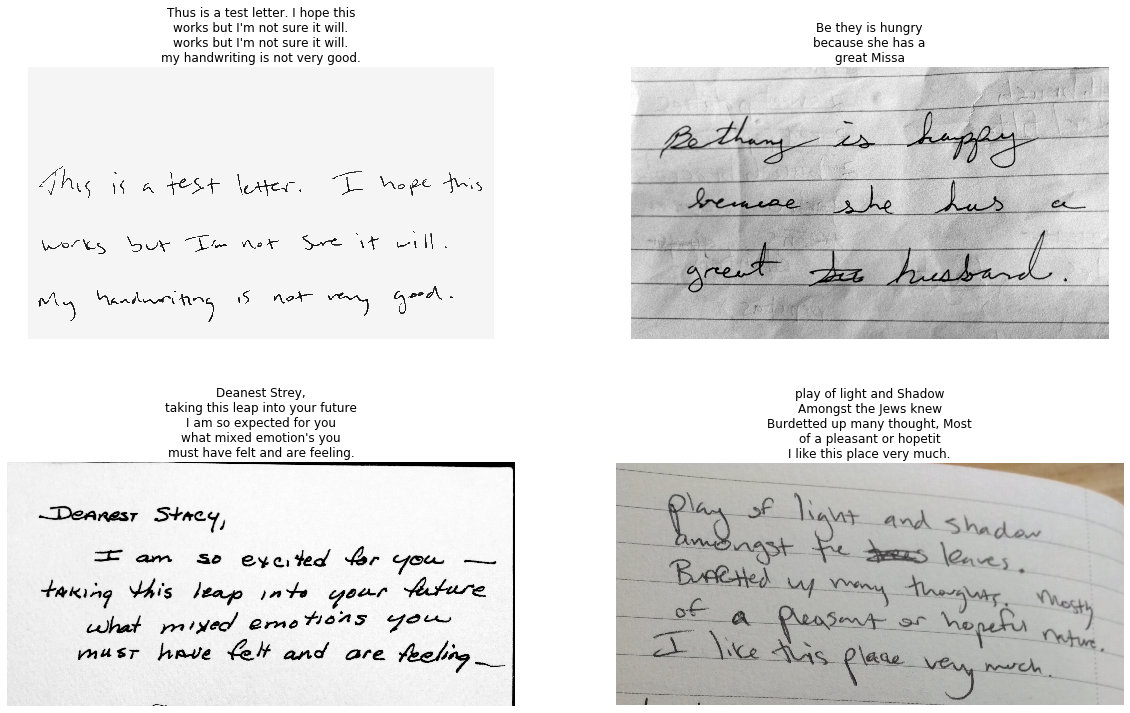 Thus is a test letter. I hope this
works but I'm not sure it will.
works but I'm not sure it will.
my handwriting is not very good.
This is a test letter. I hope this
works but I'm not sure it will.
My handwriting is not very good.
Be they is hungry
because she has a
great Missa
Bethany is happy
because she has a
great husband.
Deanest Strey,
taking this leap into your future
I am so expected for you
what mixed emotion's you
must have felt and are feeling.
Dearest Stacy,
I am so excited for you —
taking this leap into your future
what mixed emotions you
must have felt and are feeling—
play of light and Shadow
Amongst the Jews knew
Burdetted up many thought, Most
of a pleasant or hopetit
I like this place very much.
play of light and shadow
amongst the leaves.
Buffetted up many thoughts. Mostly
of a pleasant or hopeful nature.
I like this place very much.